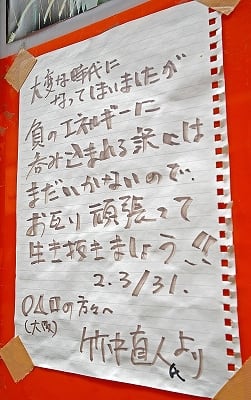 大変な時代に
なってしまいましたが
負のエネルギーに
呑み込まれる訳には
まだいかないので、
お互り頑張って
生き抜きましょう!!
2.3/31.
○△□の方々へ
(大阪)
竹中直人より